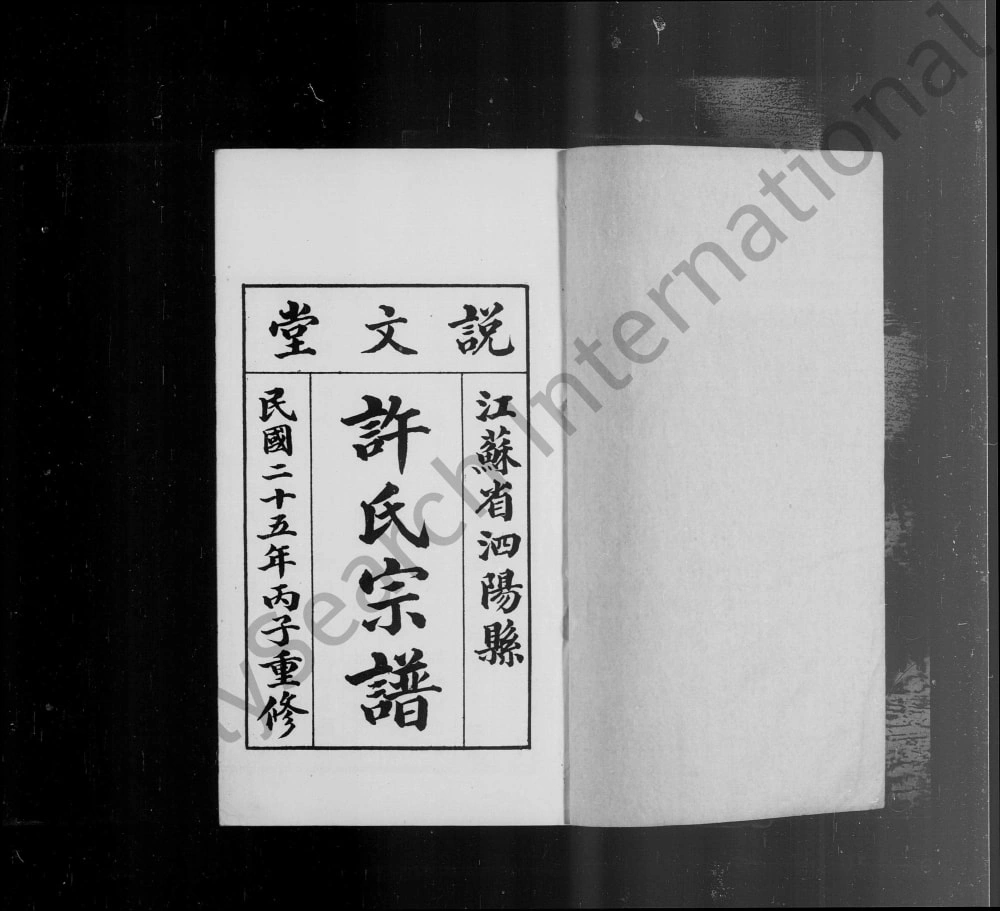 説文堂
江蘇省泗陽縣
許氏宗譜
民國二十五年丙子重修
tySearch International